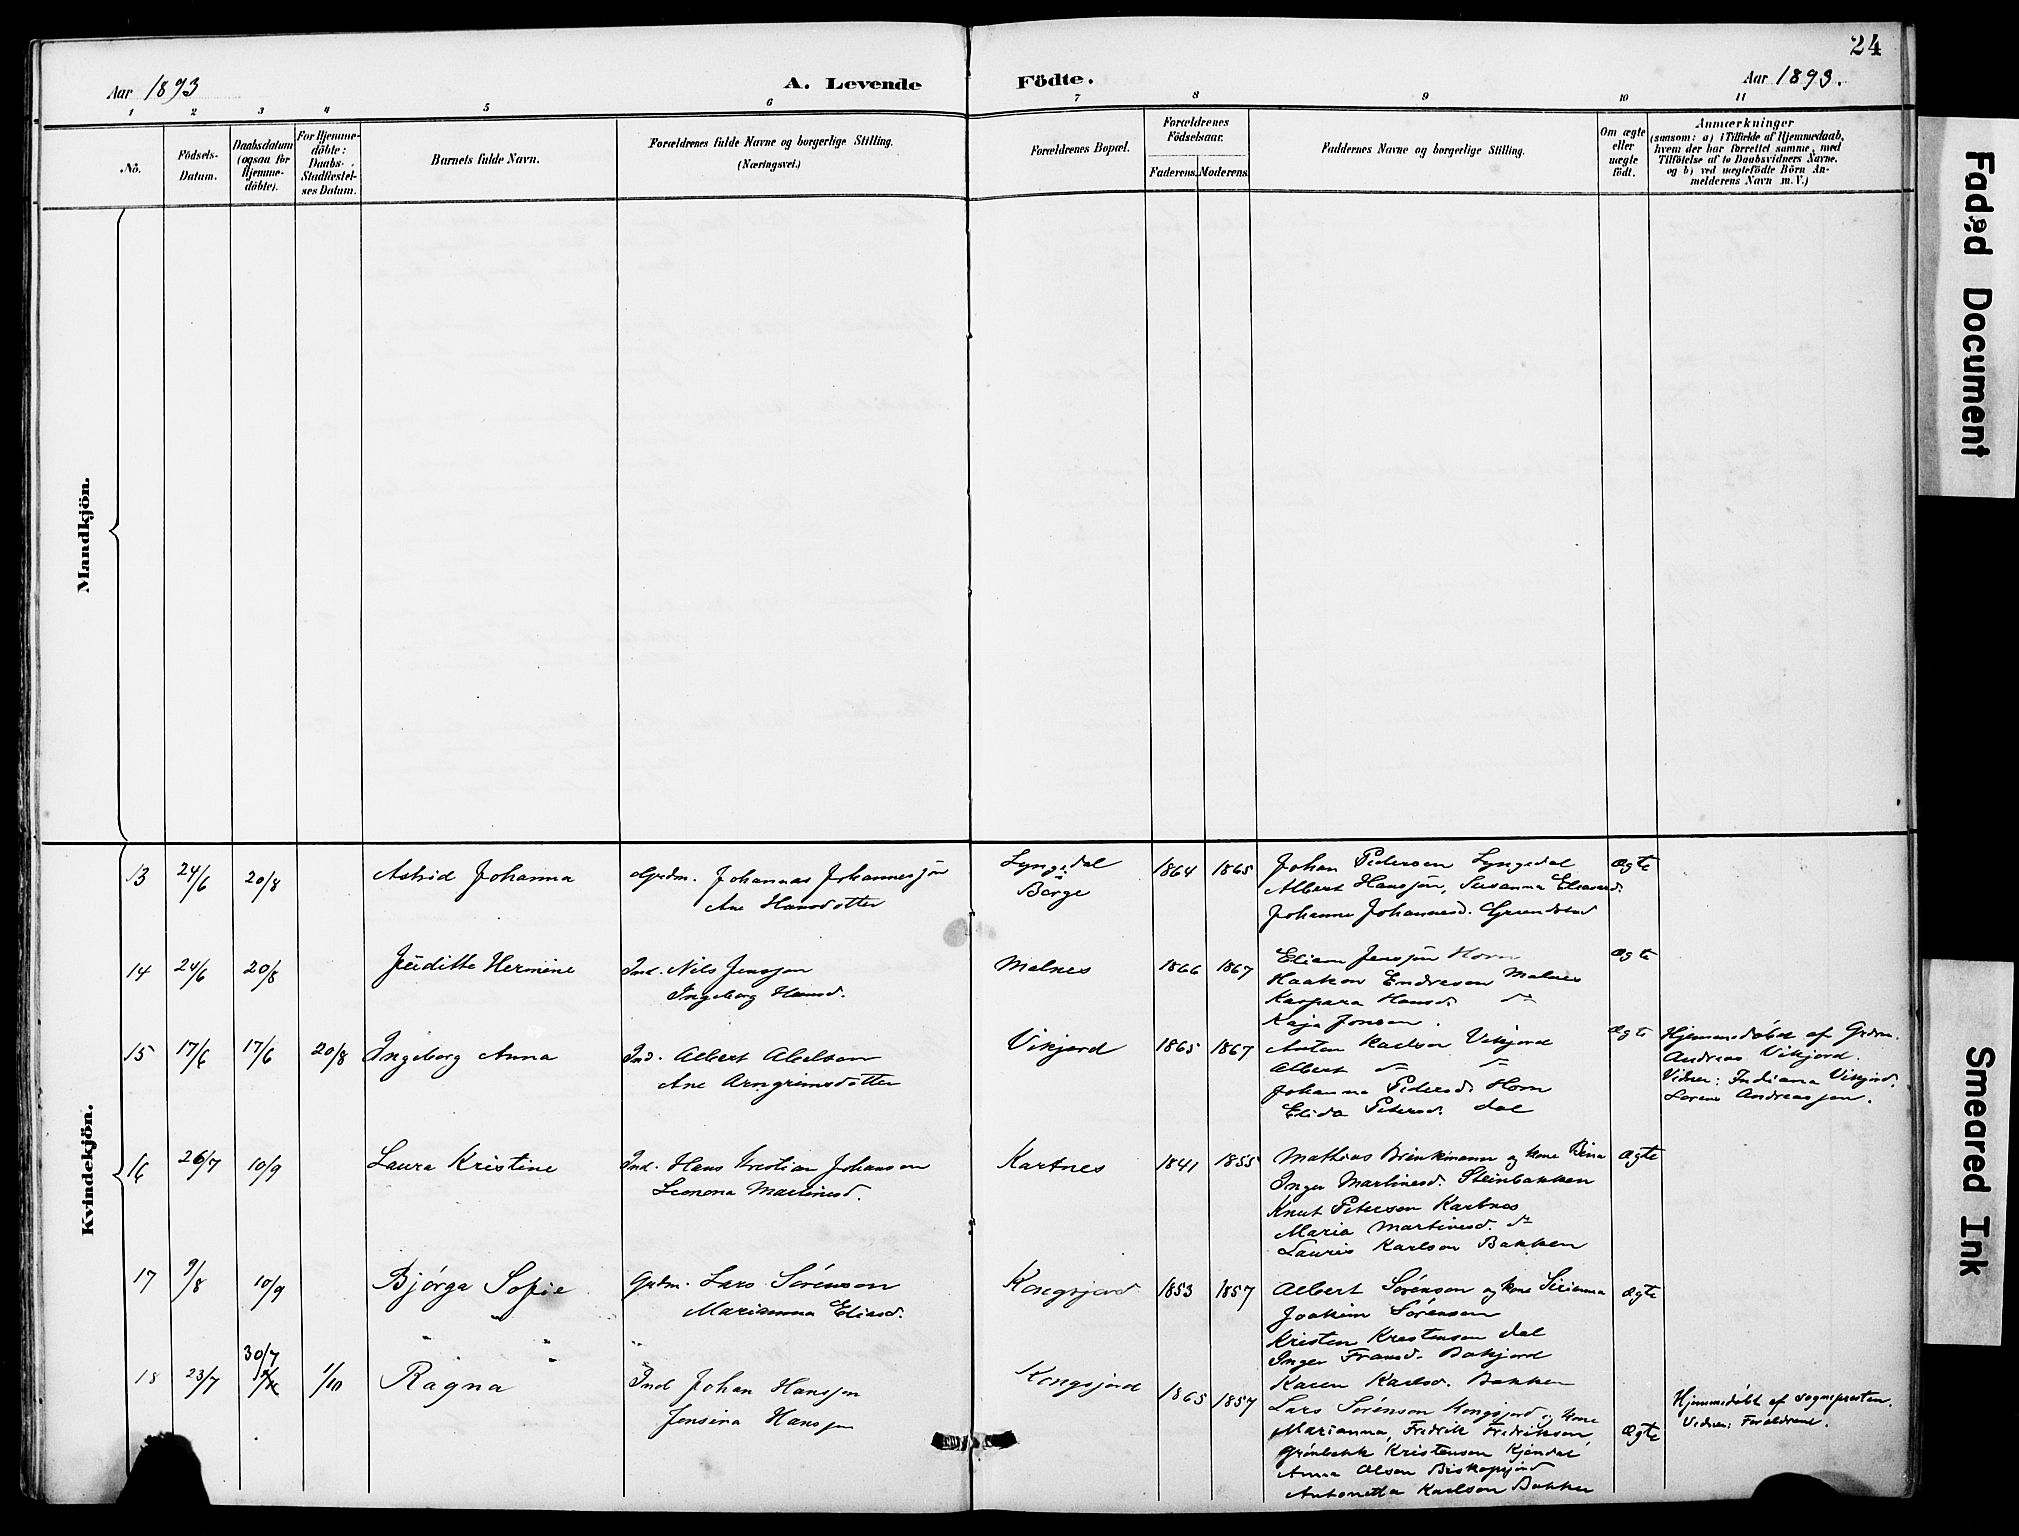 24
Aar 1893
A. Levende Födte.
Aar 1893.
1 2 3 4 5 6 7 8 9 10 11
No.
Födsels-
Datum.
Daabsdatum
(ogsaa for
Hjemme-
döbte).
For Hjemme-
döbte:
Daabs-
Stadfæstel-
ses Datum.
Barnets fulde Navn.
Forældrenes fulde Navne og borgerlige Stilling.
(Næringsvei.)
Forældrenes Bopæl.
Forældrenes
Födselsaar.
Faderens. Moderens.
Faddernes Navne og borgerlige Stilling.
Om ægte
eller
uægte
födt.
Anmærkninger
(saasom: a) i Tilfælde af Hjemmedaab,
hvem der har forrettet samme, med
Tilföielse af to Daabsvidners Navne,
og b) ved uægtefödte Börn An-
melderens Navn m. V.)
Mandkjön.
Kvindekjön.
13 24/6 20/8 Astrid Johanna
Grdm. Johannas Johannesjøn
Ane Hansdotter
Lyngedal
Borge
1864 1865
Johan Pedersen Lyngedal
Albert Hansjøn, Susanna
Johanna Johannesd. Grundstad
Ægte
14 24/6 20/8 Juditte Hermine
Ind. Nils Jensjøn
Ingeborg Hansd.
Malnes
1866 1867
Eliam Jensjøn Horn
Haakon Endresen Malnes
Kaspara Hansd. do
Kaja Jonsen.
Ægte
15 17/6 17/6 20/8 Ingeborg Anna
Ind. Albert Abelsøn
Ane Arngrimsdotter
Vikjord
1865 1867
Anton Karlson Vikjord
Albert do do
Johanna Pedersd. Horn
Elida Petersd. Dal
Ægte
Hjemmedøbt af Grdm.
Andreas Vikjord.
Vidner: Indiana Vikjord.
Lorens Andreasjen.
16 26/7 10/9 Laura Kristine
Ind. Hans Kristian Johanson
Leonora Martinesd.
Kartnes
1841 1855
Mathias Brinkmann og kone Bina
Inger Martinesd. Steinbakken
Knut Peterson Kartnes
Maria Martinesd. do
Lauris Karlson Bakken
Ægte
17 9/8 10/9 Bjørga Sofie
Grdm. Lars Sørenson
Marianna Eliasd.
Kongsjord
1853 1857
Albert Sørenson og kone Sirianna
Joakim Sørenson
Kristen Kristenson Dal
Inger Fransd. Bøkjord
Karen Karlsd. Bakken
Ægte
18 23/7 30/7 1/10 Ragna
Ind Johan Hansjen
Jensina Hansjen
Kongsjord
1865 1857
Lars Sørenson Kongsjord og kone
Marianna, Fredrik Fredrikson
Grönbekk Kristenson Kjøndal
Anna Olsen Biskopsjord
Antonetta Karlson Bakken
Ægte
Hjemmedøbt af sognepresten.
Vidner: Forældrene.
Faded Document
Smeared Ink